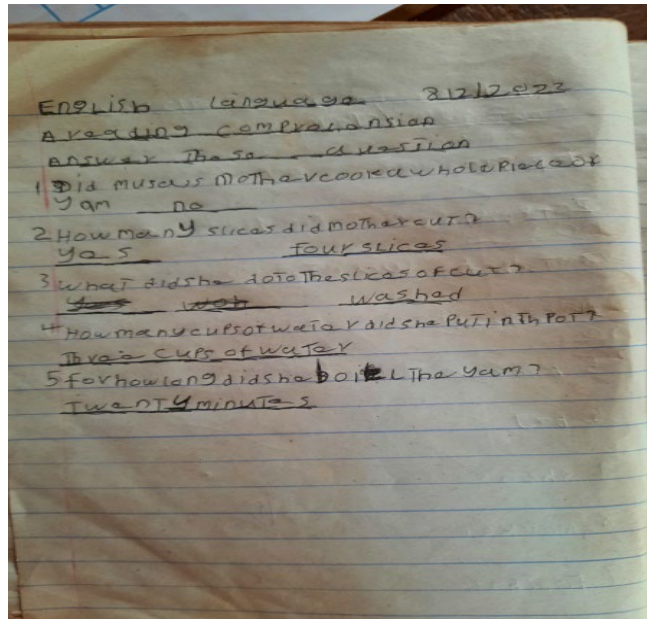 English language 8/2/2022
A reading comprehansion
Answer These question
1 Did musa's mother cooked a whole piece of
yam no
2 How many slices did mother cut?
yes four slices
3 what did she do to the slices of cut?
washed
4 How many cups of water did she put in th pot?
Threie cups of water
5 for how long did she boil the yam?
Twenty minutes